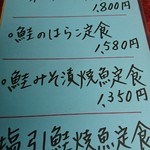 1,800円
○鮭のはらこ定食
1,580円
○鮭みそ漬焼魚定食
1,350円
塩引鮭焼魚定食